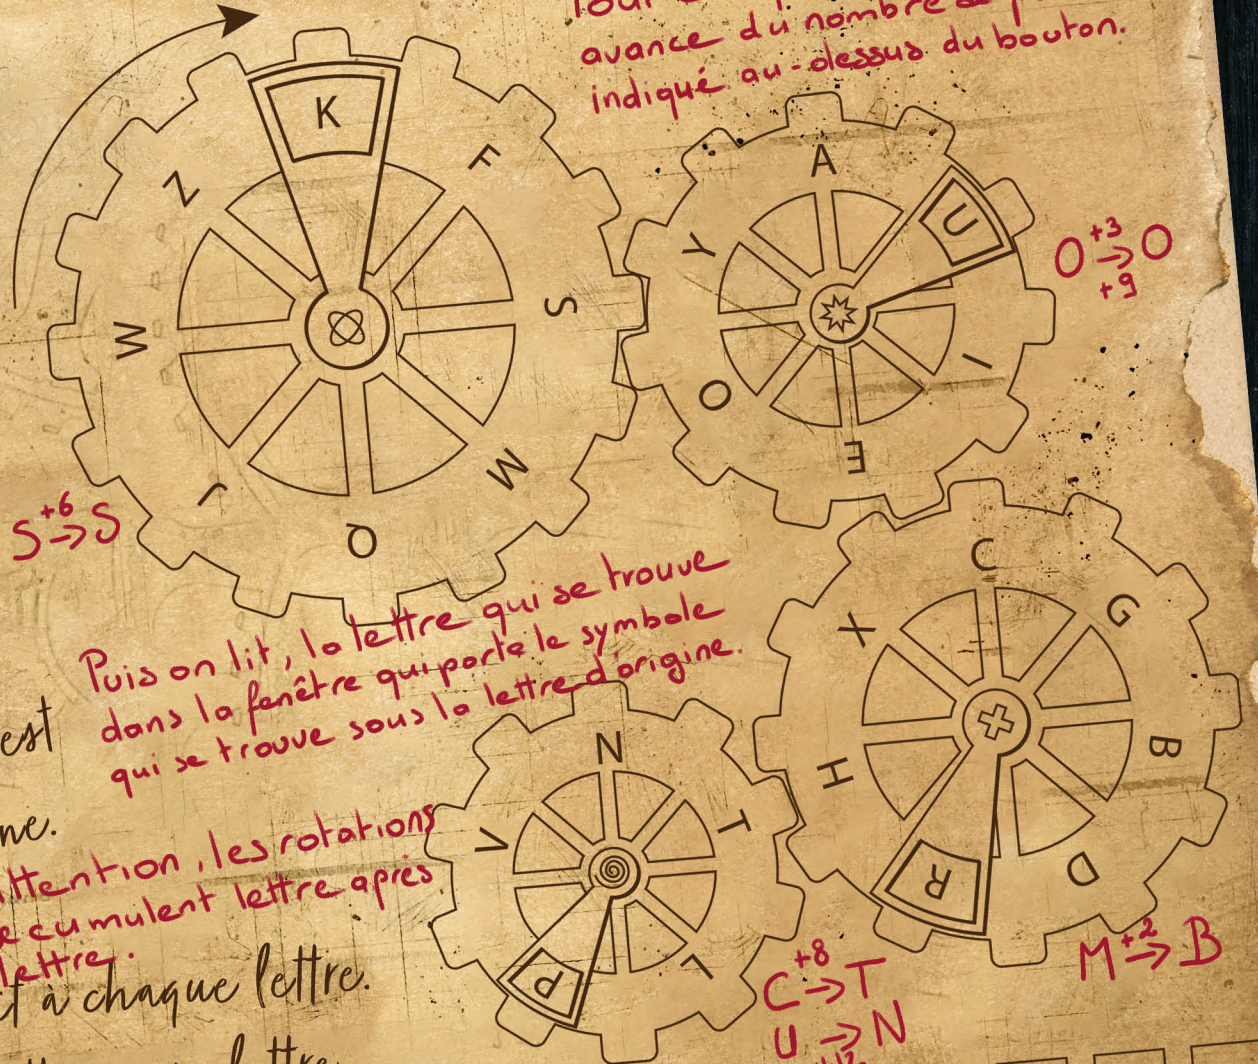 avance du nombre de
indiqué au-dessus du bouton.
K
F
S
M
Q
J
W
Z
A
U
I
E
O
Y
O +3 → O
+9
S +6 → S
Puis on lit, la lettre qui se trouve
dans la fenêtre qui porte le symbole
qui se trouve sous la lettre d'origine.
C
G
B
D
R
H
X
N
T
L
P
V
est
ne.
les rotations
cumulent lettre après
lettre.
à chaque lettre.
lettre
C +8 → T
U → N
M +2 → B